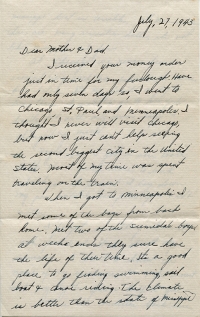 July, 27, 1943
Dear Mother & Dad
I received your money order
just in time for my furlough. Have
had only seven days so, I went to
Chicago, St. Paul and Minneapolis. I
thought I never will visit Chicago,
but now I just can't help seeing
the second biggest city in the United
States. Most of my time was spent
traveling on the train.
When I got to Minneapolis I
met some of the boys from back
home. Met two of the boys
at weeks ends they sure have
the life of their time, It's a good
place to go fishing swimming, sail
boat & canoe riding. The climate
is better than the state of Mississippi